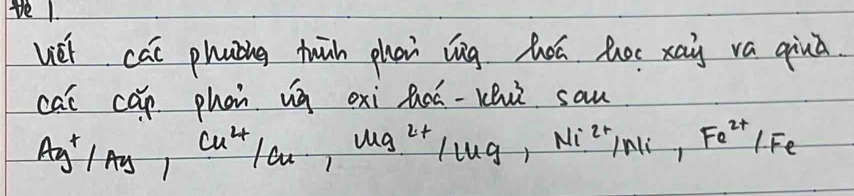 Đề 1.
Viết các phương trình phản ứng hoá học xảy ra giữa
các cặp phản ứng oxi hoá - khử sau
Ag⁺/Ag, Cu²⁺/Cu, Mg²⁺/Mg, Ni²⁺/Ni, Fe²⁺/Fe